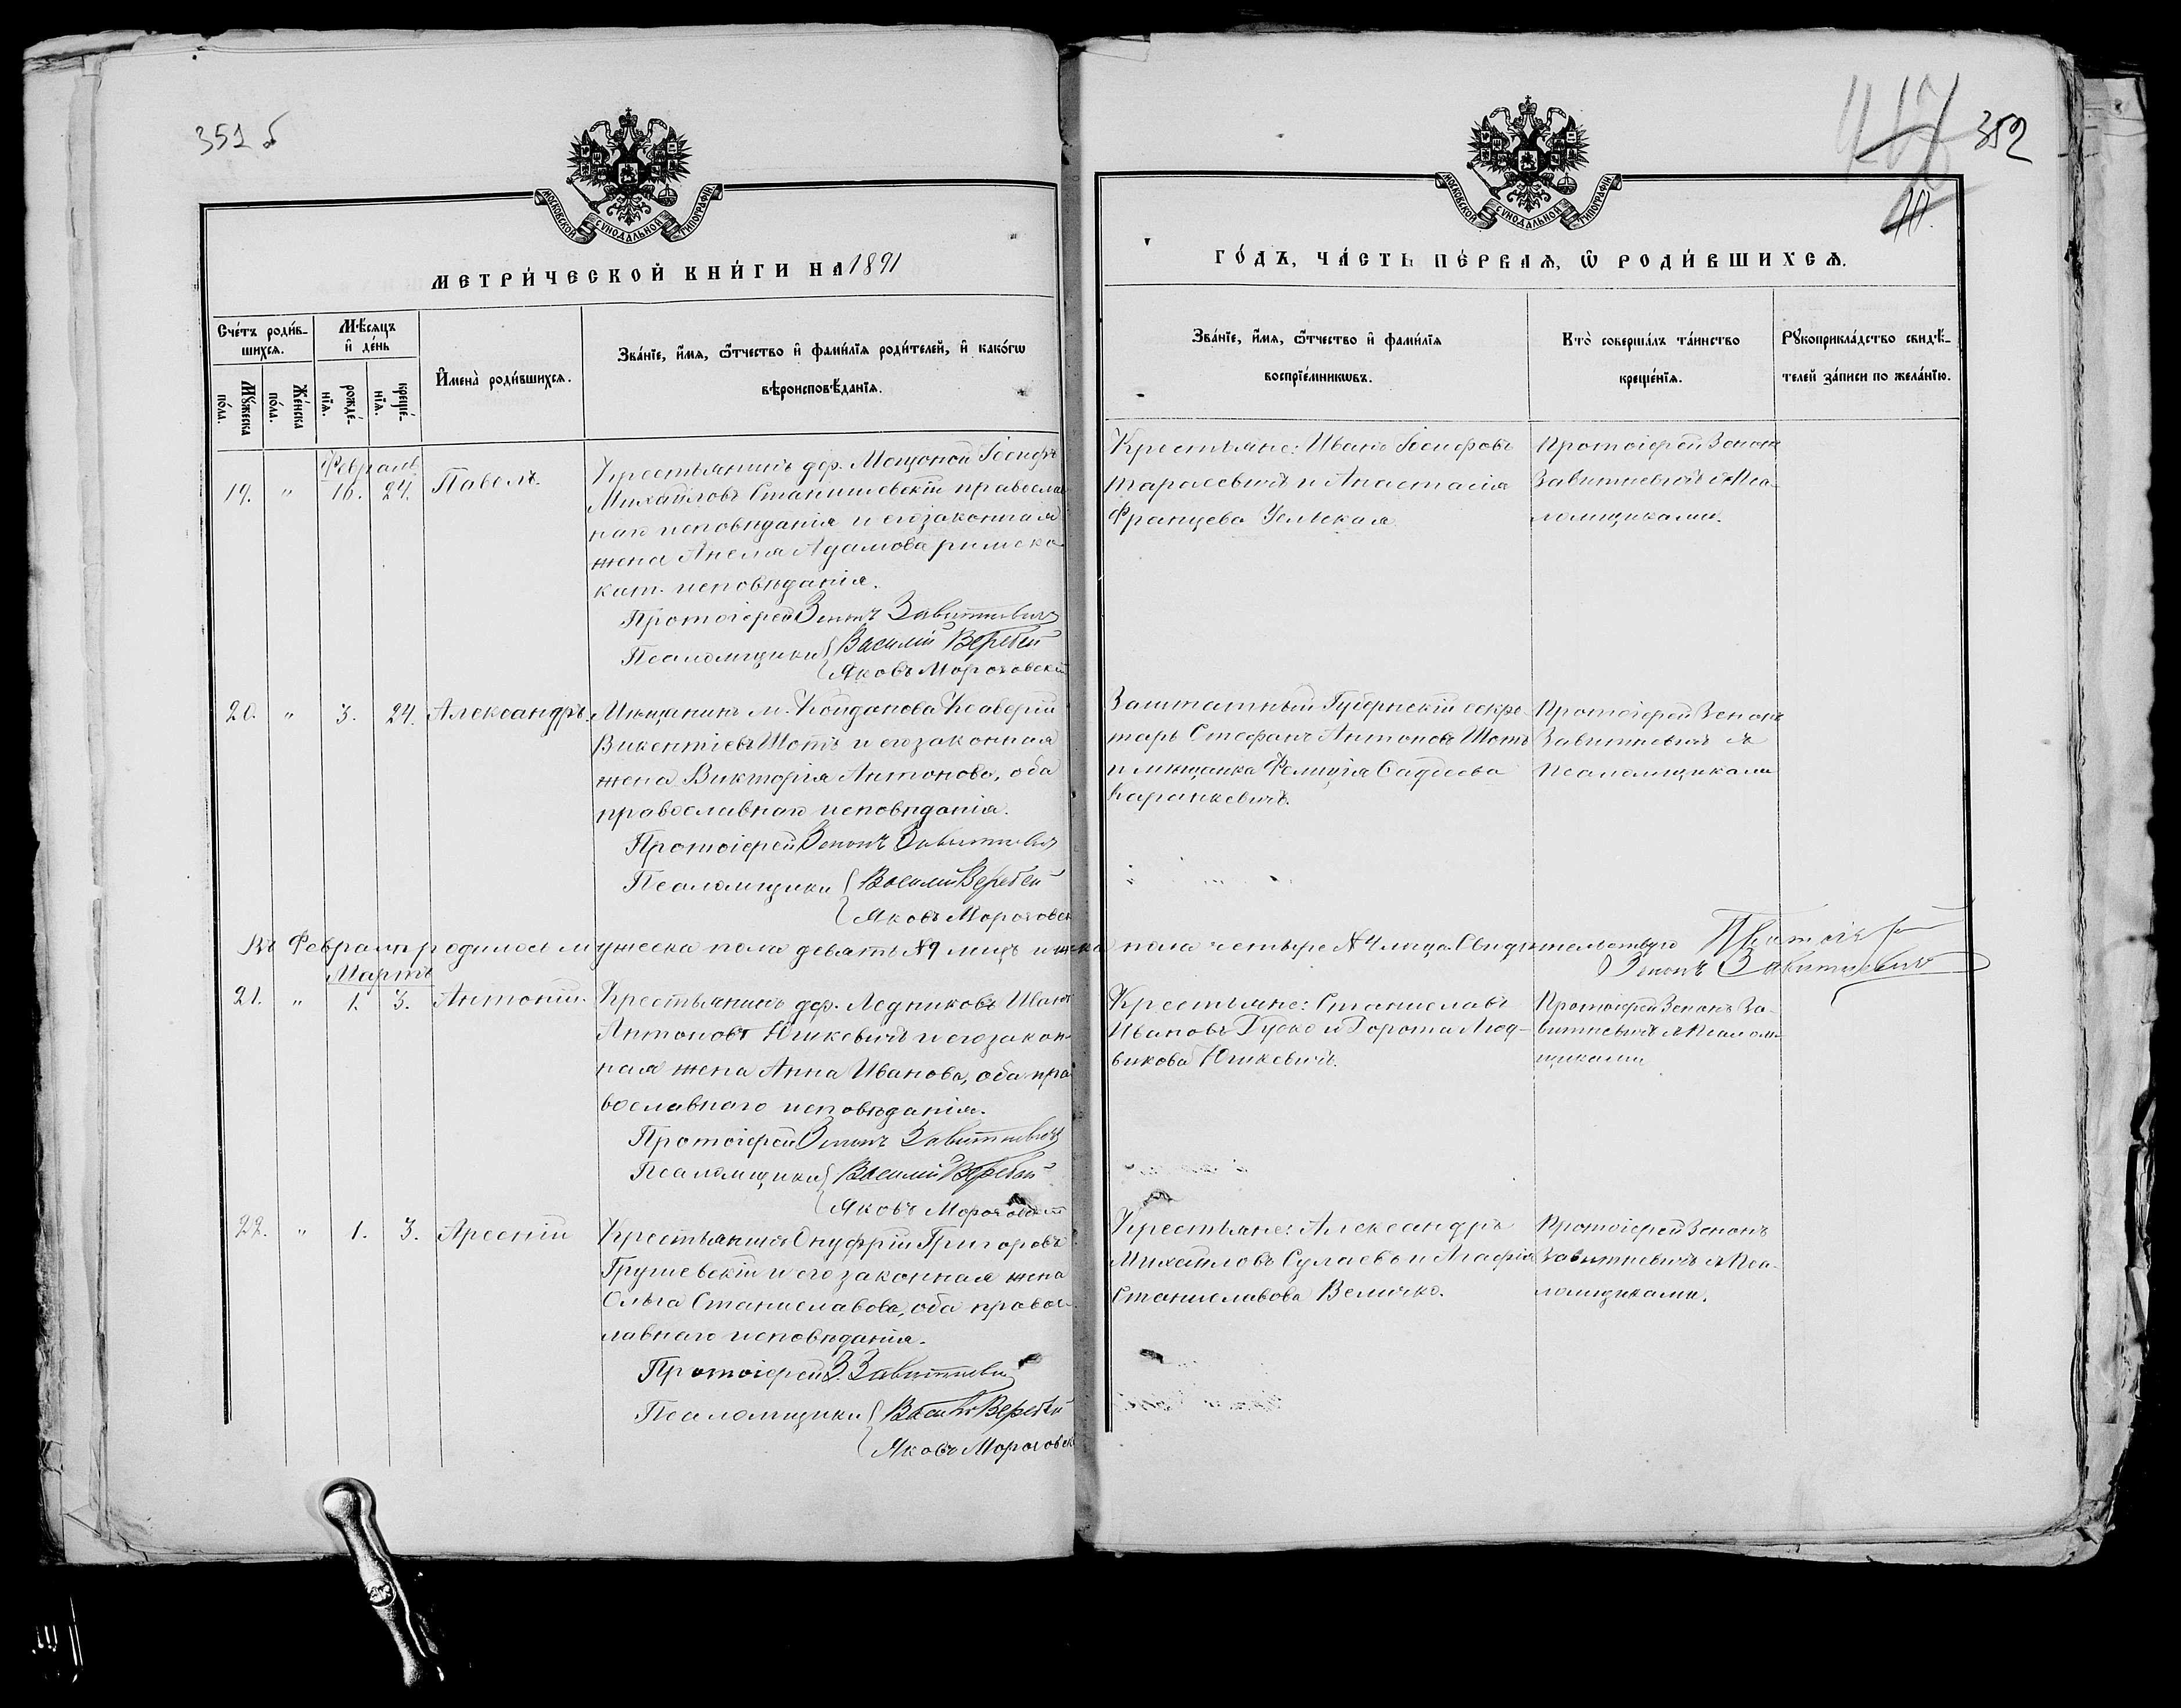 351 б
МОСКОВСКОЙ СѴНОДАЛЬНОЙ ТИПОГРАФІИ
МЕТРИ́ЧЕСКОЙ КНИ́ГИ НА 1891
Сче́тъ роди́в-
шихсѧ.
Мѣ́сѧцъ
и҆ де́нь
Мꙋ́жеска
по́ла.
Же́нска
по́ла.
рожде́-
нїѧ.
креще́-
нїѧ.
И҆мена̀ роди́вшихсѧ.
Зва́нїе, и҆́мѧ, ѻ҆́тчество и҆ фами́лїѧ роди́телей, и҆ како́гѡ
вѣроисповѣ́данїѧ.
Февраль
19. " 16. 24. Павелъ.
Крестьянинъ дер. Мощоной Іосифъ
Михайловъ Станишевскій православ
наго исповѣданія и его законная
жена Анеля Адамова римско-
кат. исповѣданія.
Протоіерей Зенонъ Завитневичъ
Псаломщики Василій Веребей
Яковъ Морочовскій
20. " 3. 24. Александръ.
Мѣщанинъ м. Койданова Ксаверій
Викентіевъ Шотъ и его законная
жена Викторія Антонова, оба
православнаго исповѣданія.
Протоіерей Зенонъ Завитневичъ
Псаломщики Василій Веребей
Яковъ Морочовск
Въ Февралѣ родилось мужеска пола девять №9 лицъ и женска пола четыре №4 лица. Свидѣтельствую Протоіерей
Зенонъ Завитневичъ
Мартъ
21. " 1. 3. Антоній.
Крестьянинъ дер. Ледниковъ Иванъ
Антоновъ Юшкевичъ и его закон-
ная жена Анна Иванова, оба пра
вославнаго исповѣданія.
Протоіерей Зенонъ Завитневичъ
Псаломщики Василій Веребей
Яковъ Морочовскій
22. " 1. 3. Арсеній
Крестьянинъ Онуфрій Григоровъ
Грушевскій и его законная жена
Ольга Станиславова, оба правос-
лавнаго исповѣданія.
Протоіерей З. Завитневич
Псаломщики Василій Веребей
Яковъ Морочовск
352
МОСКОВСКОЙ СѴНОДАЛЬНОЙ ТИПОГРАФІИ
ГО́ДЪ, ЧА́СТЬ ПЕ́РВАѦ, Ѡ҆ РОДИ́ВШИХСѦ.
Зва́нїе, и҆́мѧ, ѻ҆́тчество и҆ фами́лїѧ
воспрїе́мникѡвъ.
Кто̀ соверша́лъ та́инство
креще́нїѧ.
Рꙋкоприкла́дство свидѣ́-
телей за́писи по жела́нїю.
Крестьяне: Иванъ Іосифовъ
Тарасевичъ и Анастасія
Францева Усльская
Протоіерей Зенонъ
Завитневичъ съ Пса-
ломщиками.
Заштатный Губернскій секре-
тарь Стефанъ Антоновъ Шотъ
и мѣщанка Фелиція Садеева
Каранкевичъ.
Протоіерей Зенонъ
Завитневичъ съ
Псаломщиками
Крестьяне: Станиславъ
Ивановъ Гуско и Дорота Люд-
викова Юшкевичъ.
Протоіерей Зенонъ За-
витневичъ съ Псалом-
щиками
Крестьяне: Александръ
Михайловъ Сулаевъ и Агафія
Станиславова Величко.
Протоіерей Зенонъ
Завитневичъ съ Пса-
ломщиками.